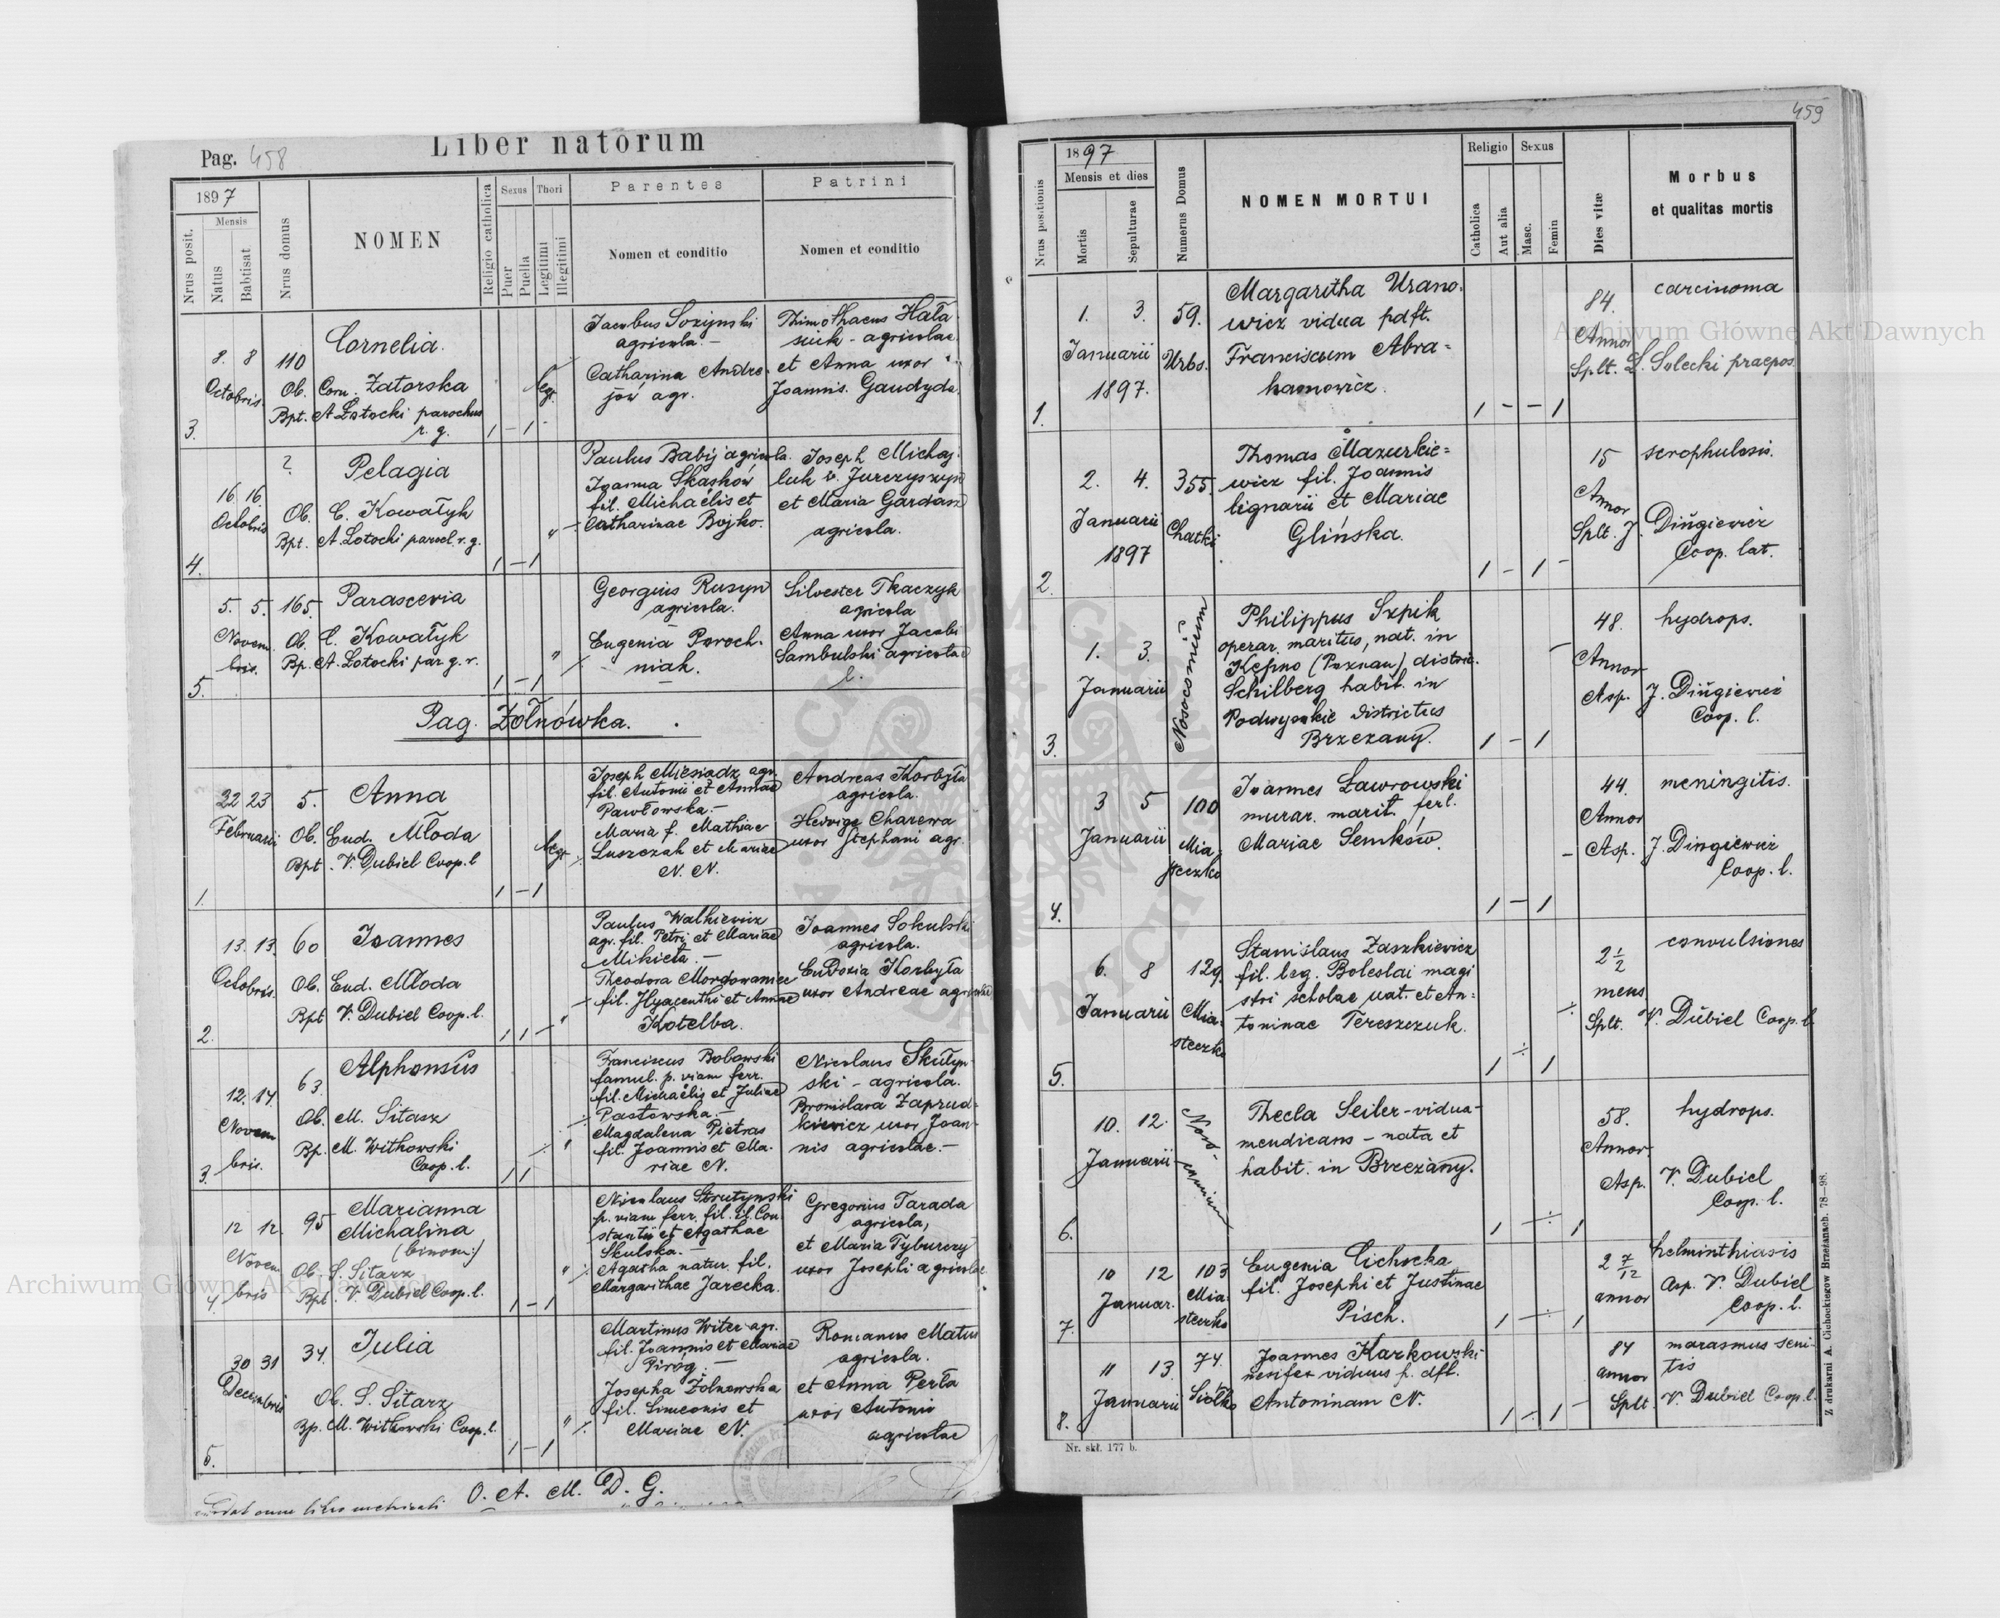 Pag. 458
Liber natorum
1897
Mensis
Nrus posit.
Natus
Babtisat
Nrus domus
NOMEN
Religio catholica
Sexus
Puer
Puella
Thori
Legitimi
Illegitimi
Parentes
Nomen et conditio
Patrini
Nomen et conditio
3.
8. 8
Octobris.
110
Cornelia.
Ob. Corn. Zatorska
Bpt. A Łotocki parochus
r. g.
1 - 1
legt.
Jacobus
agricola. -
Catharina Andre-
jów agr.
Thimothaeus Hała
siuk - agricolae
et Anna uxor
Joannis Gaudyda.
4.
16. 16.
Octobris
?
Pelagia
Ob. C. Kowałyk
Bpt. A. Łotocki paroch. r. g.
1 - 1
"
Paulus Babij agricola.
Joanna Skasków
fil. Michaëlis et
Catharinae Bojko.
Joseph Michaj-
luk v. Jurczyszyn
et Maria Gardasz
agricola.
5.
5. 5.
Novem
bris.
165.
Parascevia
Ob. C. Kowałyk
Bp. A. Łotocki par. g. r.
1 - 1
"
Georgius Rusyn
agricola.
Eugenia Poroch-
niak.
Silvester Tkaczyk
agricola
Anna uxor Jacobi
Sambulski agricolae
l.
Pag. Żołnówka.
1.
22 23
Februarii
5.
Anna
Ob. Eud. Młoda
Bpt. V. Dubiel Coop. l
1 - 1
legt.
Joseph Miesiadz agr.
fil. Antonii et Annae
Pawłowska. -
Maria f. Mathiae
Łuszczak et Mariae
N. N.
Andreas Korbyła
agricola.
Hedvigs Charewa
uxor Stephani agr.
2.
13. 13.
Octobris.
60
Joannes
Ob. Eud. Młoda
Bpt V. Dubiel Coop. l.
1 1 -
"
Paulus Walkiewicz
agr. fil. Petri et Mariae
Mikieta. -
Theodora Mordowaniec
fil. Hyacenthi et Annae
Kotelba.
Joannes Sokulski
agricola.
Eudoxia Korbyła
uxor Andreae agricolae
3.
12. 14.
Novem
bris.
63.
Alphonsus
Ob. M. Sitarz
Bp. M. Witkowski
Coop. l.
1 1
"
Franciscus Bobowski
famul. p. viam ferr.
fil. Michaëlis et Juliae
Pastowska. -
Magdalena Pietras
fil. Joannis et Ma-
riae N.
Nicolaus Skulyn-
ski - agricola.
Bronislava Zaprud-
kiewicz uxor Joan-
nis agricolae. -
4.
12 12.
Novem
bris
95
Marianna
Michalina
(binom:)
Ob. S. Sitarz
Bpt. V. Dubiel Coop. l.
1 - 1
"
Nicolaus Strutynski
p. viam ferr. fil. il. Con
stantii et Agathae
Skulska. -
Agatha natur. fil.
Margarithae Jarecka.
Gregorius Tarada
agricola,
et Maria Tyburczy
uxor Josephi agricolae
5.
30 31
Decembris
34.
Julia
Ob. S. Sitarz
Bp. M. Witkowski Coop. l.
1 - 1
"
Martinus Witer agr.
fil. Joannis et Mariae
Piróg. -
Josepha Żolnowska
fil. Simeonis et
Mariae N.
Romanus Matus
agricola.
et Anna Perła
uxor Antonii
agricolae
O. A. M. D. G.
459
1897
Mensis et dies
Nrus positionis
Mortis
Sepulturae
Numerus Domus
NOMEN MORTUI
Religio
Catholica
Aut alia
Sexus
Masc.
Femin
Dies vitæ
Morbus
et qualitas mortis
1.
1. 3.
Januarii
1897.
59.
Urbs.
Margaritha Urano-
wicz vidua pdft.
Franciscum Abra-
hamowicz.
1 - - 1
84.
Annor
Splt.
carcinoma
L. Solecki praepos.
2.
2. 4.
Januarii
1897
355.
Chatki
Thomas Mazurkie=
wicz fil. Joannis
lignarii et Mariae
Glińska.
1 - 1 -
15
Annor
Splt.
scrophulosis.
J. Dingiewicz
Coop. lat.
3.
1. 3.
Januarii
Nosocomium
Philippus Szpik
operar. maritus, nat. in
Kępno (Poznan) distric.
Schilberg habit. in
Podwysokie districtus
Brzezany.
1 - 1
48.
Annor
Asp.
hydrops.
J. Dingiewicz
Coop. l.
4.
3 5
Januarii
100
Mia
steczko
Joannes Ławrowski
murar. marit. ferl.
Mariae Semków.
1 - 1
44.
Annor
Asp.
meningitis.
J. Dingiewicz
Coop. l.
5.
6. 8
Januarii
129.
Mia-
steczko
Stanislaus Zaszkiewicz
fil. leg. Boleslai magi
stri scholae nat. et An=
toninae Tereszczuk.
1 ÷ 1
2 1/2
mens
Splt.
convulsiones
V. Dubiel Coop. l.
6.
10. 12.
Januarii
Noso-
comium
Thecla Seiler - vidua -
mendicans - nata et
habit. in Brzezany.
1 ÷ 1
58.
Annor
Asp.
hydrops.
V. Dubiel
Coop. l.
7.
10 12
Januar.
103
Mia-
steczko
Eugenia Cichocka
fil. Josephi et Justinae
Pisch.
1 ÷ 1
2 7/12
annor
helminthiasis
Asp. V. Dubiel
Coop. l.
8.
11 13.
Januarii
74.
Siołko
Joannes Karkowski
viduus p. dft.
Antoninam N.
1 ÷ 1 -
84
annor
Splt
marasmus seni-
lis
V. Dubiel Coop. l.
Nr. skł. 177 b.
Z drukarni A. Cichockiegow Brzeżanach. 78—98.
Archiwum Główne Akt Dawnych
Archiwum Główne Akt Dawnych